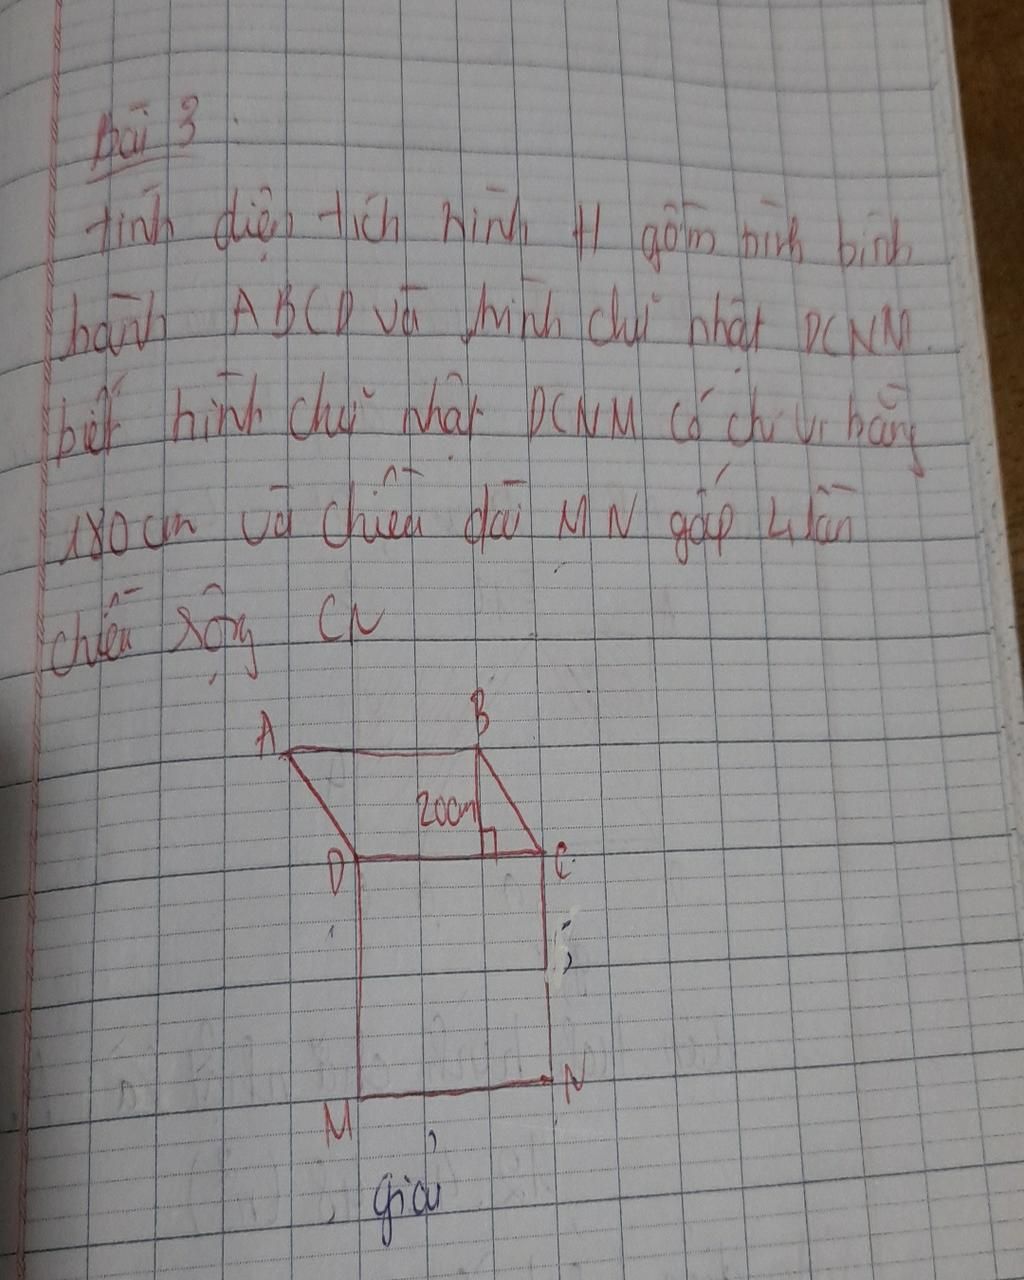 Bài 3
tính diện tích hình H gồm hình bình
hành ABCD và hình chữ nhật DCNM
biết hình chữ nhật DCNM có chi vi bằng
180cm và chiều dài MN gấp 4 lần
chiều rộng CN
A B
20cm
D C
M N
giải